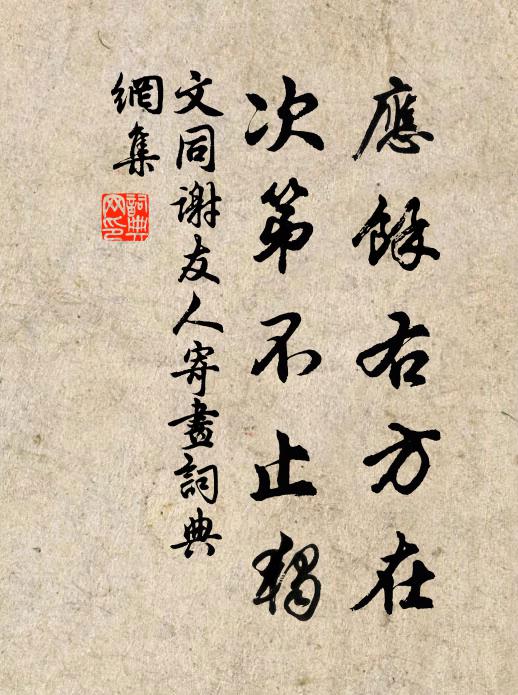 應餘右方在
次第不止獨
文同谢友人寄畫詞典
網集
詞典網印